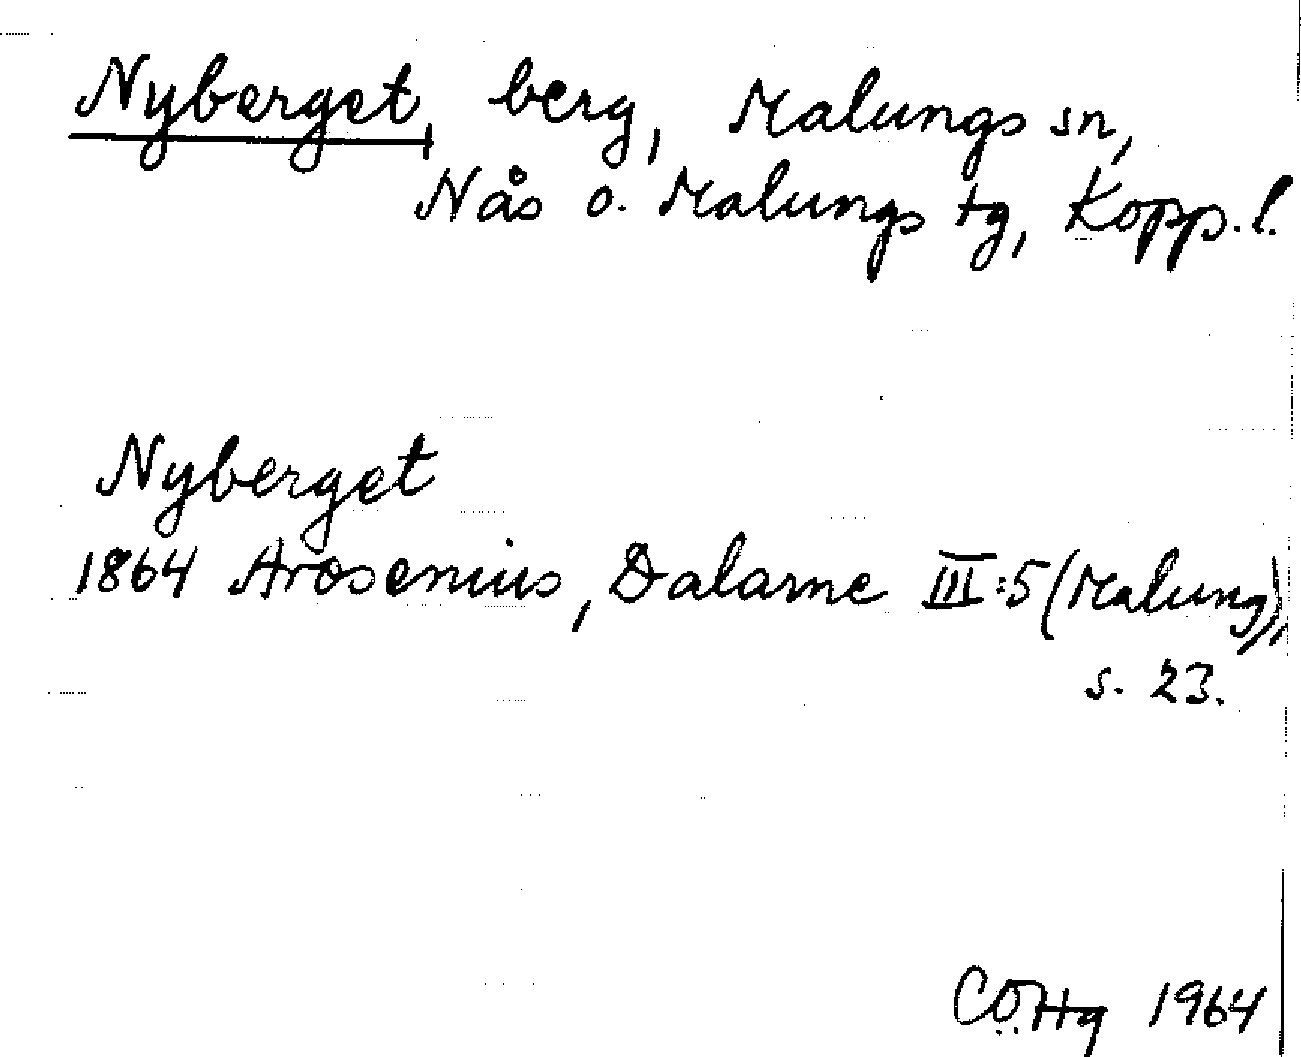 Nyberget, berg, Malungs sn,
Nås o. Malungs tg, Kopp. l.
Nyberget
1864 Arosenius, Dalarne III:5 (Malung),
s. 23.
CÖHg 1964